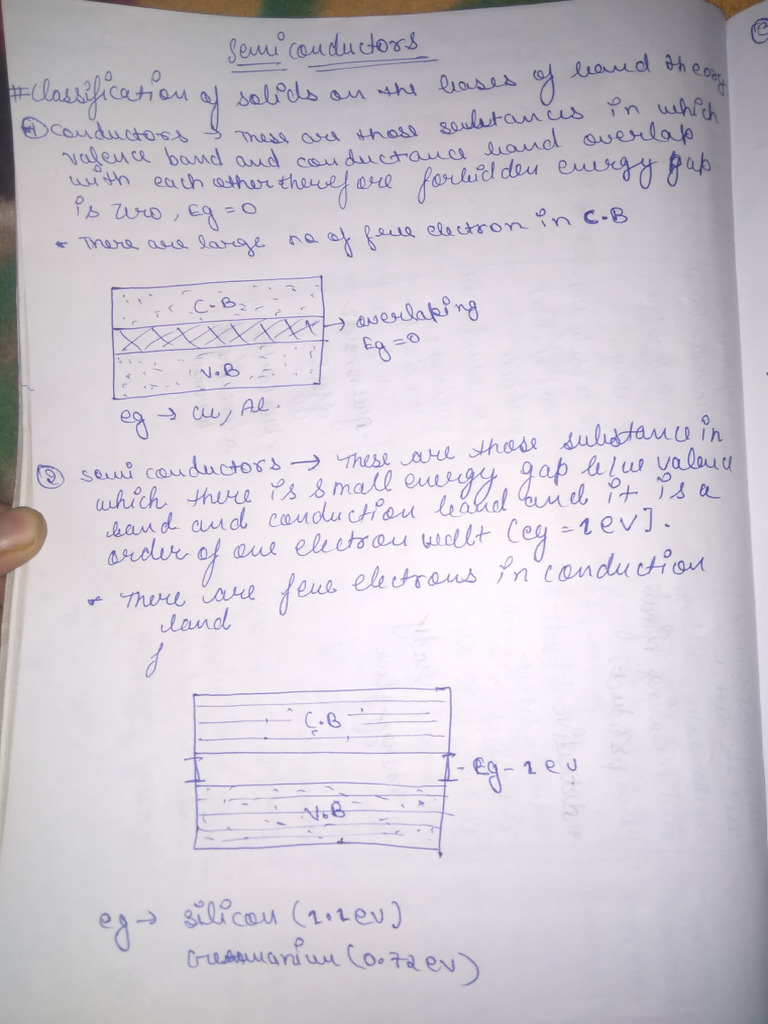 Semiconductors
# Classification of solids on the bases of band theory
① Conductors → These are those substances in which
valence band and conductance band overlap
with each other therefore forbidden energy gap
is zero, Eg = 0
* There are large no of free electron in C.B
C.B
→ overlaping
Eg = 0
V.B
eg → Cu, Al.
② Semi conductors → These are those substance in
which there is small energy gap b/w valence
band and conduction band and it is a
order of one electron volt (eg = 1 eV).
* There are few electrons in conduction
band
C.B
- Eg - 1 ev
V.B
eg → silicon (1.1 ev)
Germanium (0.72 ev)